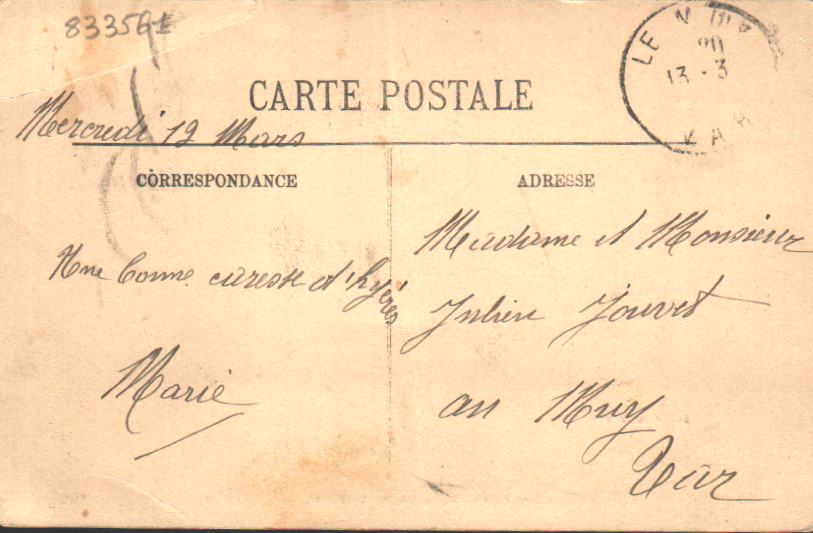 83356
LE MUY
20
13 - 3
VAR
CARTE POSTALE
Mercredi 12 Mars
CORRESPONDANCE
ADRESSE
Une bonne caresse d'hyères
Marie
Madame et Monsieur
Julien Jouvet
au Muy
Var